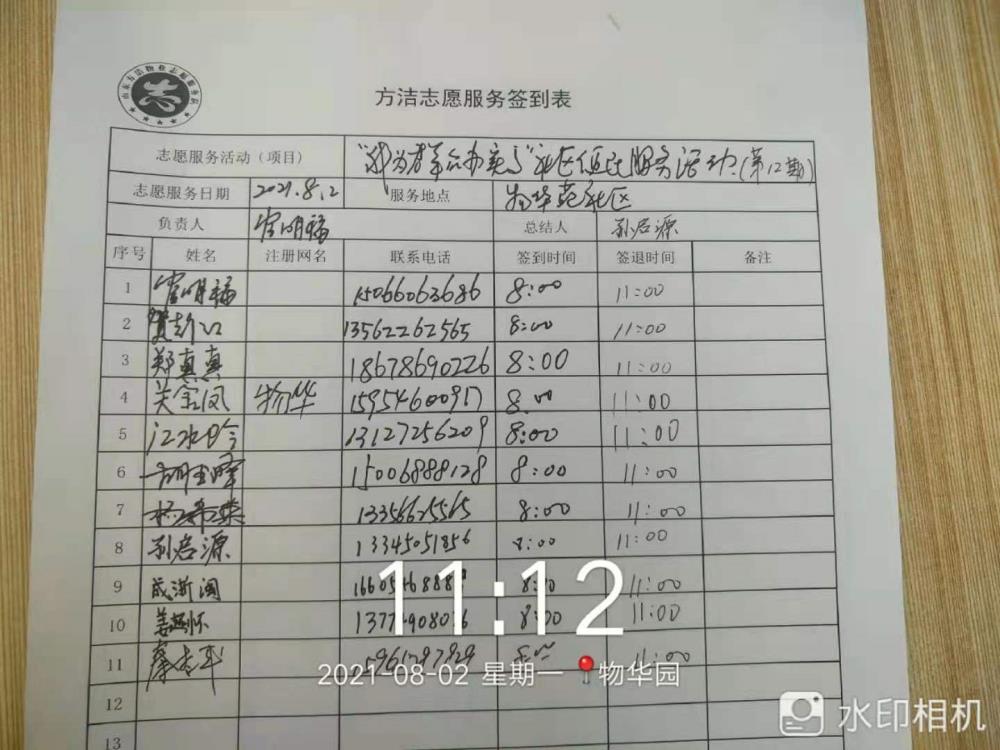 方洁志愿服务签到表
志愿服务活动（项目） "我为群众办实事"社区便民服务活动(第12期)
志愿服务日期 2021.8.2 服务地点 物华苑社区
负责人 官明福 总结人 孙启源
序号 姓名 注册网名 联系电话 签到时间 签退时间 备注
1 官明福 15066063686 8:00 11:00
2 13562262565 8:00 11:00
3 郑真真 18678690226 8:00 11:00
4 关金凤 物华 15954600917 8:00 11:00
5 江水吟 13127256209 8:00 11:00
6 15006888128 8:00 11:00
7 8:00 11:00
8 孙启源 13345051856 8:00 11:00
9 成浙闽 8:00 11:00
10 姜燕怀 8:00 11:00
11 11:00
12
13
11:12
2021-08-02 星期一 物华园
水印相机